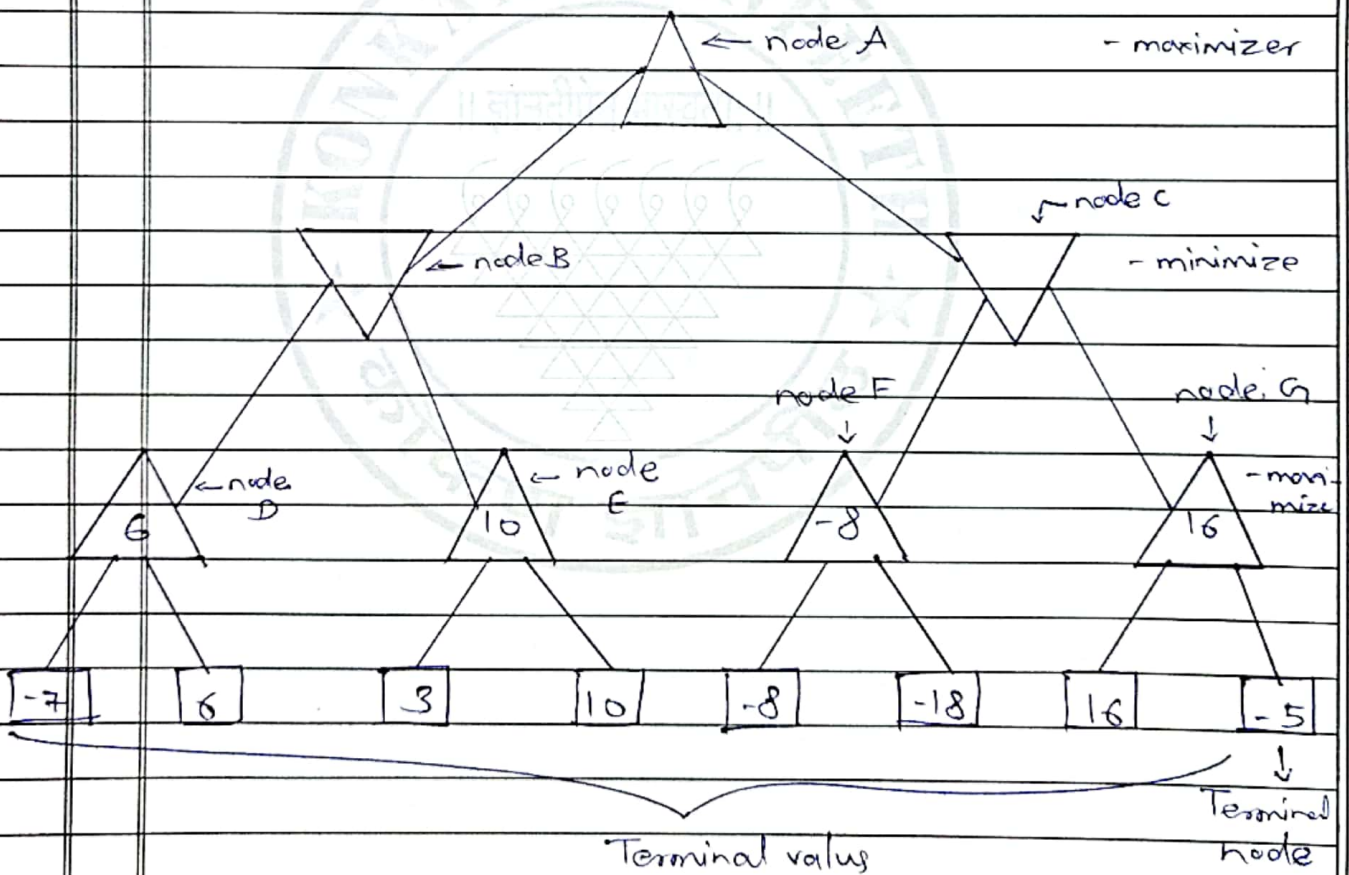 ← node A - maximizer
node C
← node B - minimize
node F node G
← node D ← node E - maxi-
mize
6 10 -8 16
-7 6 3 10 -8 -18 16 -5
Terminal
node
Terminal valus